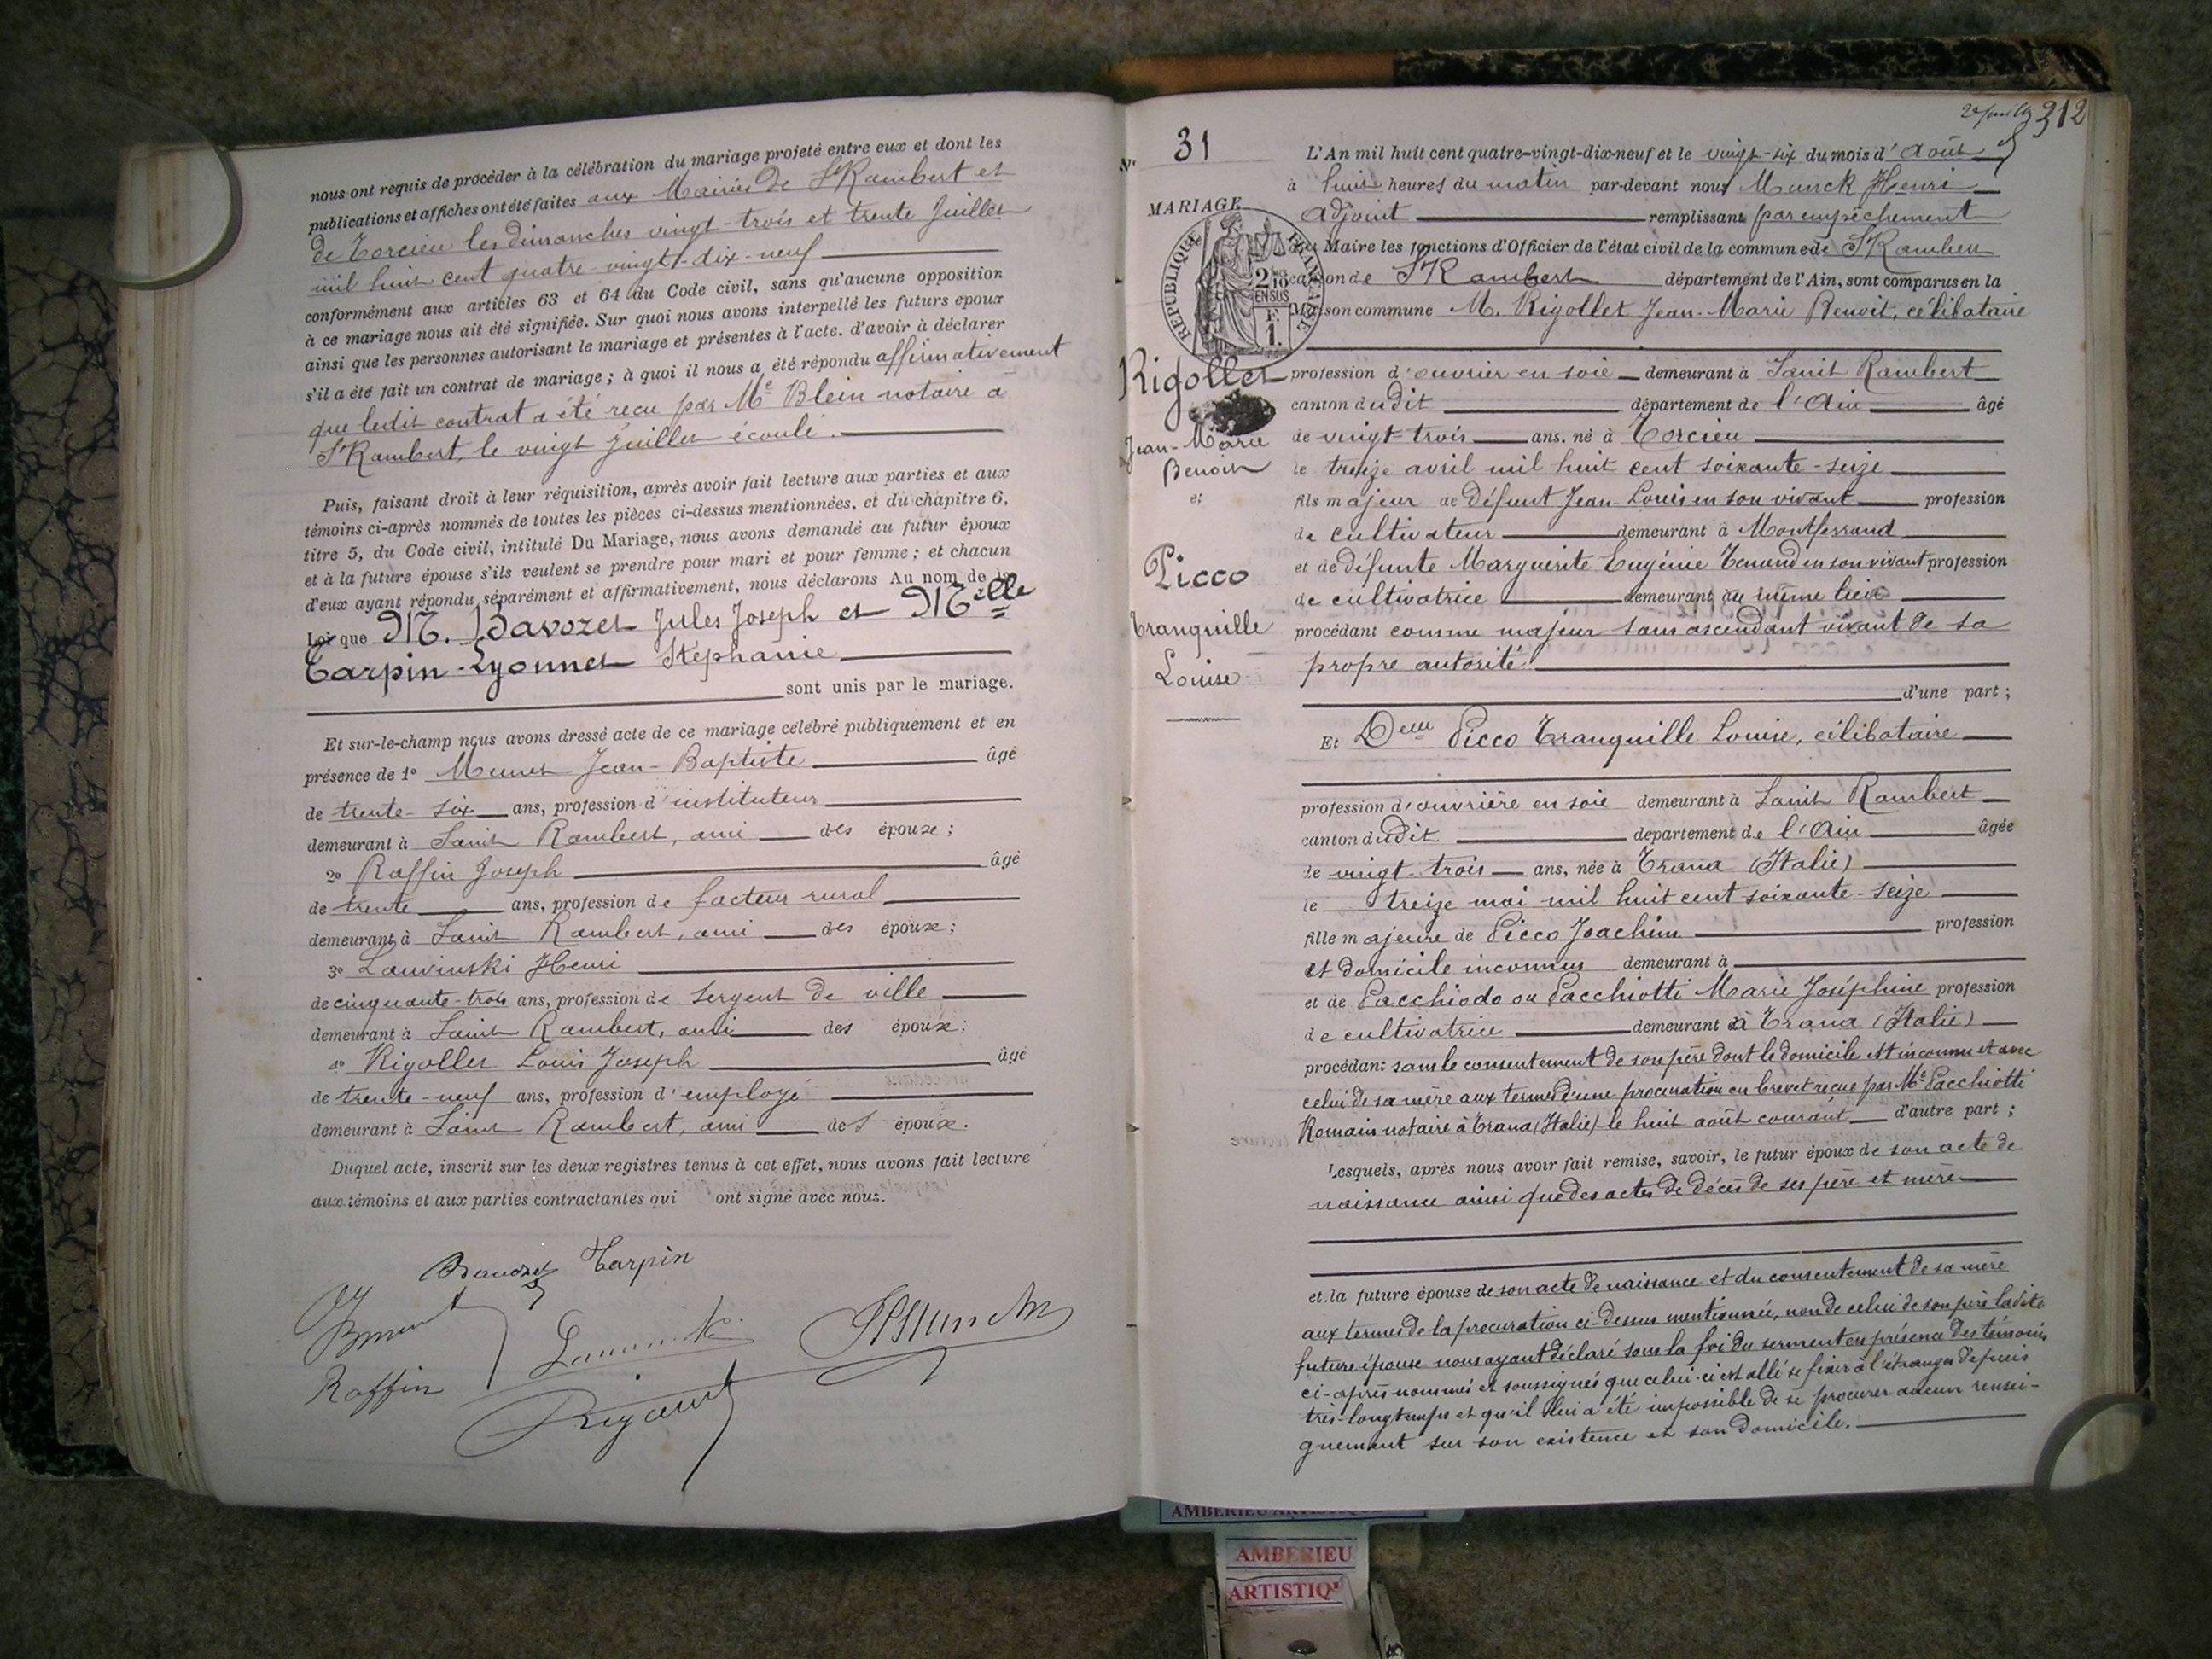 nous ont requis de procéder à la célébration du mariage projeté entre eux et dont les
publications et affiches ont été faites aux Mairies de St Rambert et
de Torcieu les dimanches vingt-trois et trente Juillet
mil huit cent quatre-vingt-dix-neuf
conformément aux articles 63 et 64 du Code civil, sans qu'aucune opposition
à ce mariage nous ait été signifiée. Sur quoi nous avons interpellé les futurs époux
ainsi que les personnes autorisant le mariage et présentes à l'acte. d'avoir à déclarer
s'il a été fait un contrat de mariage ; à quoi il nous a été répondu affirmativement
que ledit contrat a été reçu par Me Blein notaire à
St Rambert, le vingt Juillet écoulé.
Puis, faisant droit à leur réquisition, après avoir fait lecture aux parties et aux
témoins ci-après nommés de toutes les pièces ci-dessus mentionnées, et du chapitre 6,
titre 5, du Code civil, intitulé Du Mariage, nous avons demandé au futur époux
et à la future épouse s'ils veulent se prendre pour mari et pour femme ; et chacun
d'eux ayant répondu séparément et affirmativement, nous déclarons Au nom de la
Loi que M. Bavozet Jules Joseph et Melle
Tarpin-Lyonnet Stéphanie
sont unis par le mariage.
Et sur-le-champ nous avons dressé acte de ce mariage célébré publiquement et en
présence de 1° Munet Jean-Baptiste âgé
de trente-six ans, profession d'instituteur
demeurant à Saint Rambert, ami des époux ;
2° Raffin Joseph âgé
de trente ans, profession de facteur rural
demeurant à Saint Rambert, ami des époux ;
3° Lauvinski Henri
de cinquante-trois ans, profession de sergent de ville
demeurant à Saint Rambert, ami des époux ;
4° Rigollet Louis Joseph âgé
de trente-neuf ans, profession d'employé
demeurant à Saint Rambert, ami des époux.
Duquel acte, inscrit sur les deux registres tenus à cet effet, nous avons fait lecture
aux témoins et aux parties contractantes qui ont signé avec nous.
Bavozet Tarpin
Raffin
312
N° 31
MARIAGE
RÉPUBLIQUE FRANÇAISE
2/10 EN SUS
1.
Rigollet
Jean-Marie
Benoit
et
Picco
Tranquille
Louise
L'An mil huit cent quatre-vingt-dix-neuf et le vingt-six du mois d'août
à huit heures du matin par-devant nous Munck Henri
adjoint remplissant par empêchement
du Maire les fonctions d'Officier de l'état civil de la commune de St Rambert
canton de St Rambert département de l'Ain, sont comparus en la
Maison commune M. Rigollet Jean-Marie Benoit, célibataire
profession d'ouvrier en soie demeurant à Saint Rambert
canton dudit département de l'Ain âgé
de vingt-trois ans. né à Torcieu
le treize avril mil huit cent soixante-seize
fils majeur de défunt Jean-Louis en son vivant profession
de cultivateur demeurant à Montferrand
et de défunte Marguerite Eugénie Tenand en son vivant profession
de cultivatrice demeurant au même lieu
procédant comme majeur sans ascendant vivant de sa
propre autorité
d'une part ;
Et Delle Picco Tranquille Louise, célibataire
profession d'ouvrière en soie demeurant à Saint Rambert
canton dudit département de l'Ain âgée
de vingt-trois ans, née à Trana (Italie)
le treize mai mil huit cent soixante-seize
fille majeure de Picco Joachim profession
et domicile inconnus demeurant à
et de Pacchiodo ou Pacchiotti Marie Joséphine profession
de cultivatrice demeurant à Trana (Italie)
procédant sans le consentement de son père dont le domicile est inconnu et avec
celui de sa mère aux termes d'une procuration en brevet reçue par Me Pacchiotti
Romain notaire à Trana (Italie) le huit août courant d'autre part ;
Lesquels, après nous avoir fait remise, savoir, le futur époux de son acte de
naissance ainsi que des actes de décès de ses père et mère
et la future épouse de son acte de naissance et du consentement de sa mère
aux termes de la procuration ci-dessus mentionnée, non de celui de son père ladite
future épouse nous ayant déclaré sous la foi du serment en présence des témoins
ci-après nommés et soussignés que celui-ci est allé se fixer à l'étranger depuis
très-longtemps et qu'il lui a été impossible de se procurer aucun rensei-
gnement sur son existence et son domicile.
AMBERIEU ARTISTIQUE
AMBERIEU
ARTISTIQ